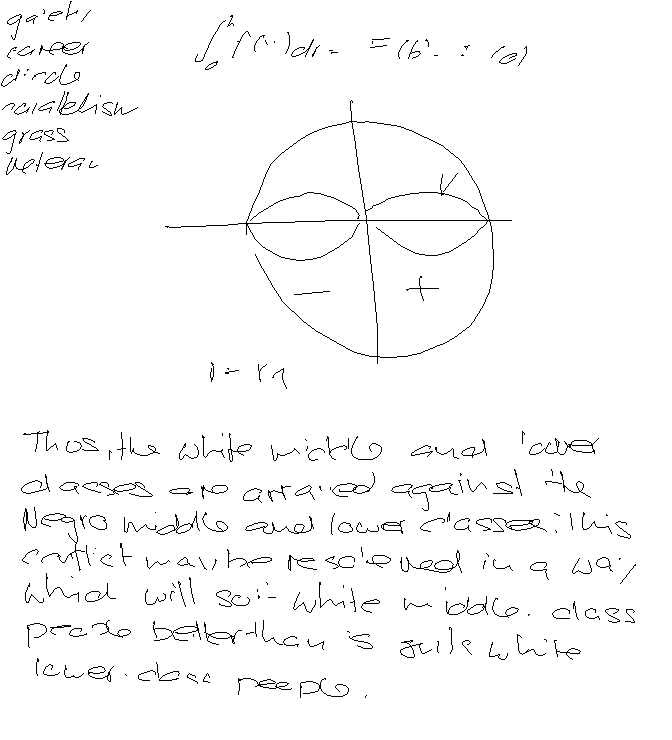 gaiety
career
circle
parallelism
grass
veteran
Thus, the white middle and lower
classes are arraied against the
Negro middle and lower classes. This
conflict may be resolved in a way
which will suit white middle-class
people better than it suits white
lower-class people.